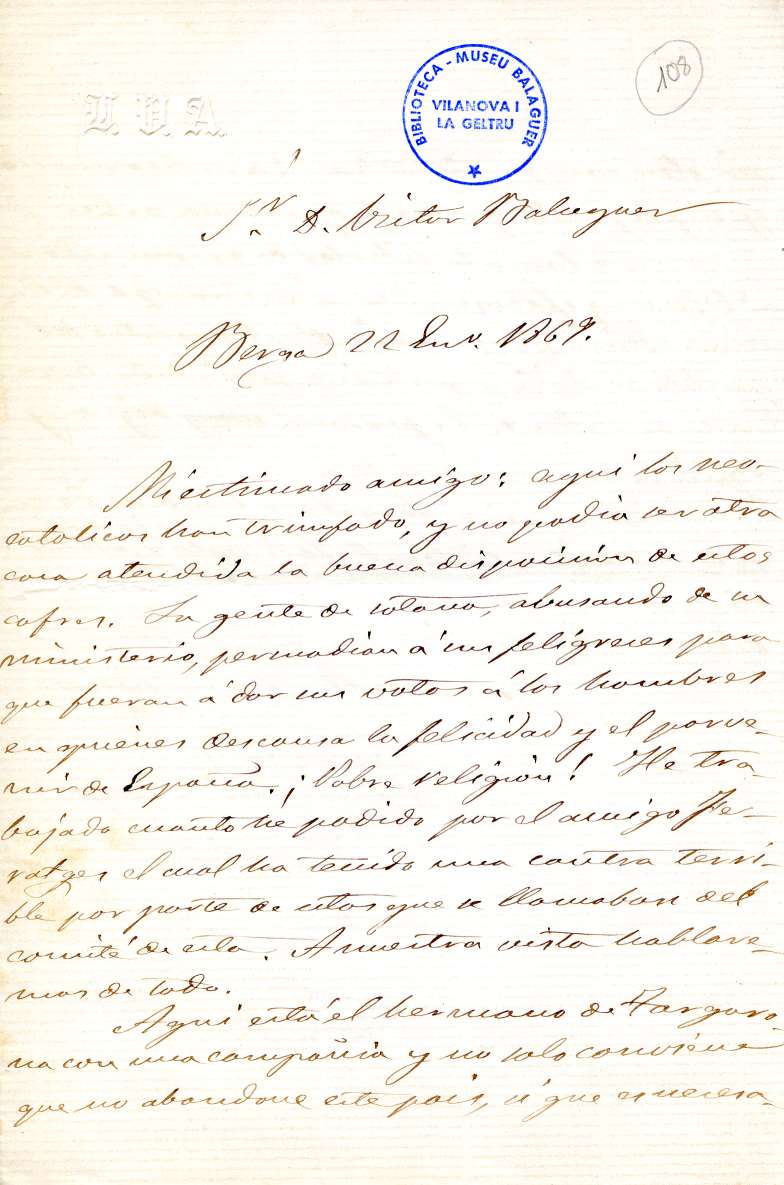 L V A
BIBLIOTECA - MUSEU BALAGUER
VILANOVA I
LA GELTRU
108
Sr. D. Victor Balaguer
Berga 22 Enº. 1869.
Mi estimado amigo: aqui los neo-
catolicos han trimfado, y no podia ser otra
cosa atendida la buena disposición de estos
cafres. La gente de sotana, abusando de su
ministerio, persuadian á sus feligreses para
que fueran á dar sus votos á los hombres
en quienes descansa la felicidad y el porve-
nir de España. ¡Pobre religion! He tra-
bajado cuanto hé podido por el amigo Fe-
ratges el cual ha tenido una contra terri-
ble por parte de estos que se llamaban del
comité de esta. A nuestra vista hablare-
mos de todo.
Aqui está el hermano de Targaro-
na con una compañia y no solo conviene
que no abandone este pais, si que es necesa-